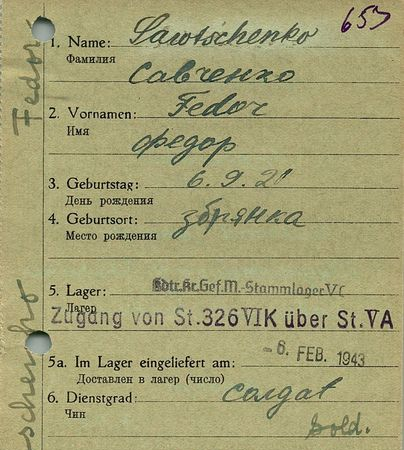 653
1. Name: Sawtschenko
Фамилия
Савченко
2. Vornamen: Fedor
Имя
Федор
3. Geburtstag: 6.9.20
День рождения
4. Geburtsort: Збрянка
Место рождения
5. Lager: Kr.Gef.M.-Stammlager
Лагер
Zugang von St.326 VIK über St.VA
- 6. FEB. 1943
5a. Im Lager eingeliefert am:
Доставлен в лагер (число)
6. Dienstgrad: солдат
Чин
Sold.
Fedor
schenko